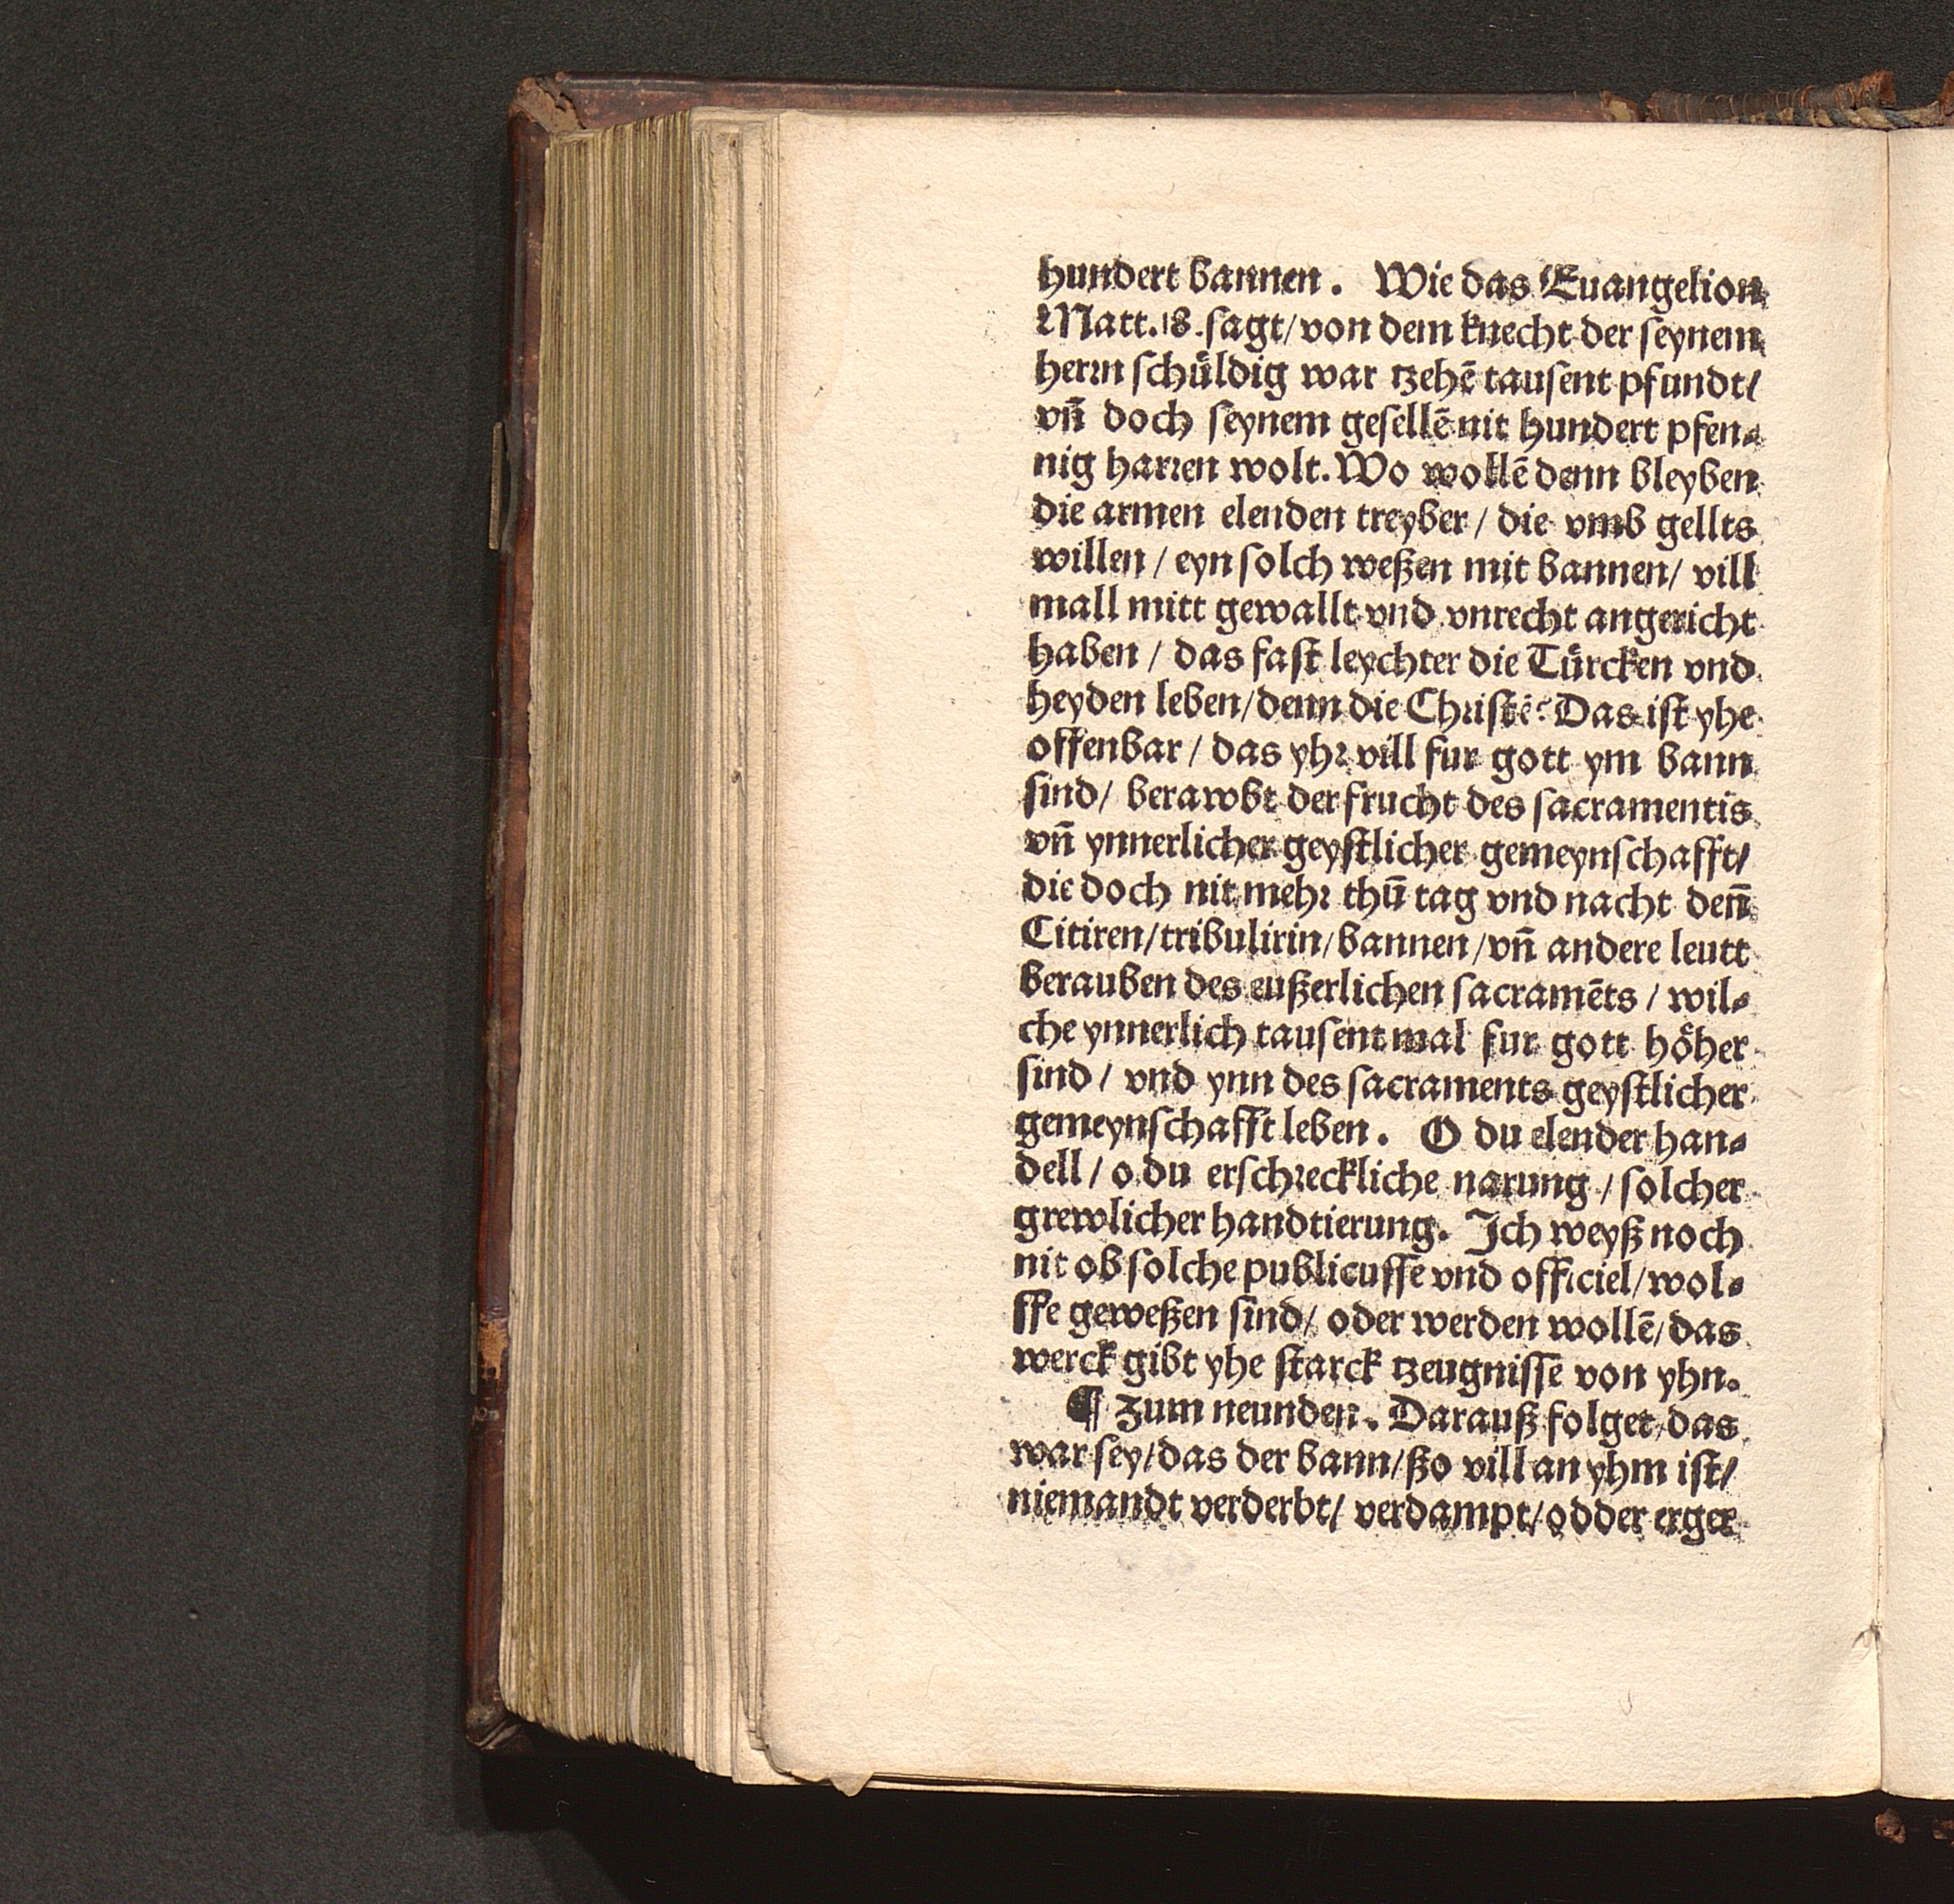 hundert bannen. Wie das Euangelion
Matt.18.sagt/von dem knecht der seynem
herrn schüldig war tzehē tausent pfundt/
vñ doch seynem gesellē nit hundert pfen-
nig harren wolt. Wo wollē denn bleyben
die armen elenden treyber / die vmb gellts
willen / eyn solch weßen mit bannen/ vill
mall mitt gewallt vnd vnrecht angericht
haben / das fast leychter die Türcken vnd
heyden leben/denn die Christē? Das ist yhe
offenbar / das yhr vill fur gott ym bann
sind/ berawbt der frucht des sacramentis
vñ ynnerlicher geystlicher gemeynschafft/
die doch nit mehr thū tag vnd nacht deñ
Citiren/tribulirin/bannen/vñ andere leutt
berauben des eußerlichen sacramēts / wil-
che ynnerlich tausent mal fur gott höher
sind / vnd ynn des sacraments geystlicher
gemeynschafft leben. O du elender han-
dell / o du erschreckliche narung / solcher
grewlicher handtierung. Ich weyß noch
nit ob solche publicusse vnd officiel/wol-
ffe geweßen sind/ oder werden wollē/das
werck gibt yhe starck tzeugnisse von yhn.
¶ Zum neunden. Darauß folget das
war sey/das der bann/ßo vill an yhm ist/
niemandt verderbt/ verdampt/odder erger